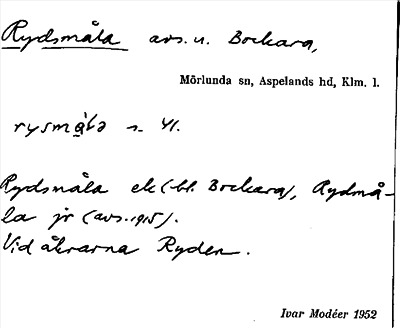 Rydsmåla avs. u. Bockara,
Mörlunda sn, Aspelands hd, Klm. l.
rysmåla n. Yl.
Rydsmåla ek (bl. Bockara), Rydmå-
la jr (avs. 1915).
Vid åkrarna Ryden.
Ivar Modéer 1952